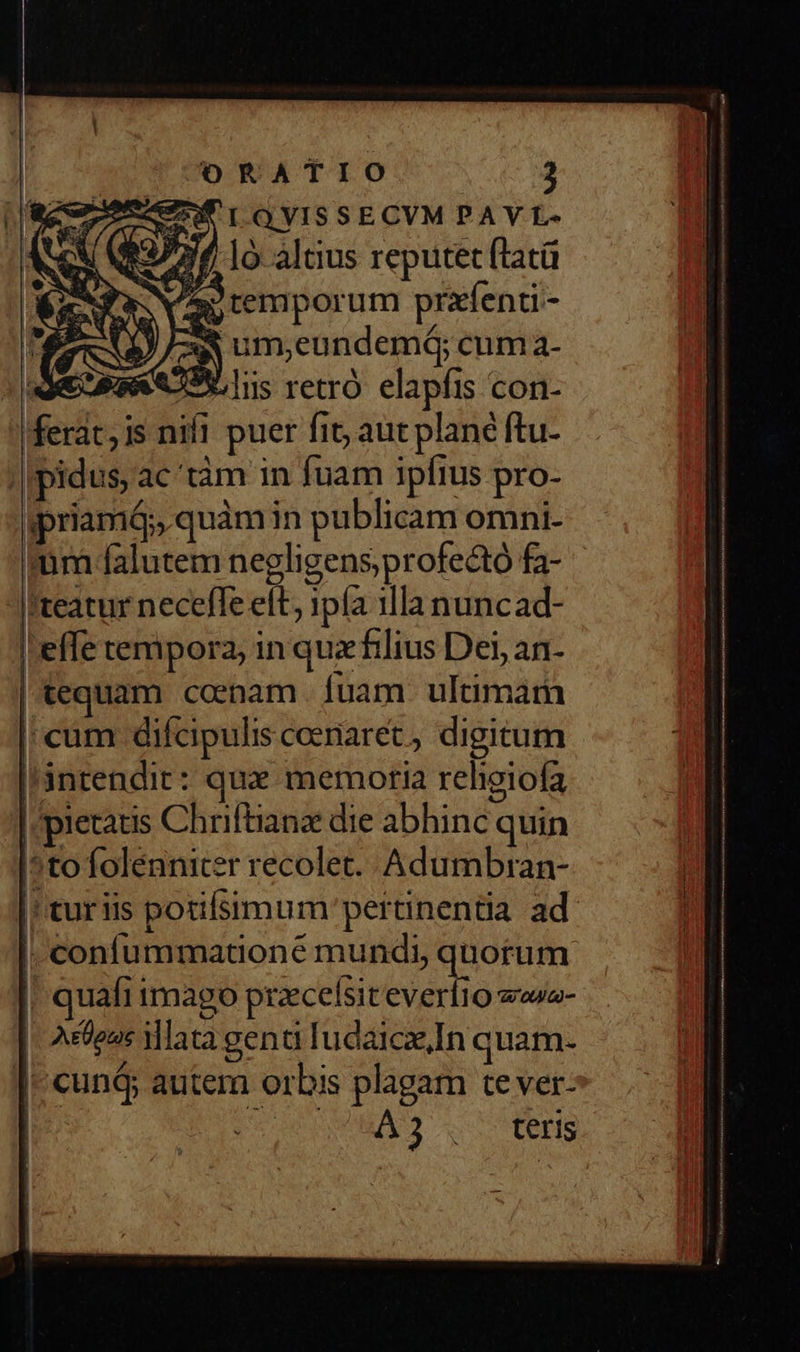 ORATIO 3
I QVIS SECVM PAVL-
lò altius reputet ſtatũ
temporum præſenti-
um,eundemq́; cum a-
liis retrò elapſis con-
ferat, is niſi puer ſit, aut planè ſtu-
pidus, ac tàm in ſuam ipſius pro-
priamq́;, quàm in publicam omni-
um ſalutem negligens, profectò fa-
teatur neceſſe eſt, ipſa illa nunc ad-
eſſe tempora, in quæ filius Dei, an-
tequam cœnam ſuam ultimam
cum diſcipulis cœnaret, digitum
intendit: quæ memoria religioſa
pietatis Chriſtianæ die abhinc quin
to ſolenniter recolet. Adumbran-
tur iis potiſsimum pertinentia ad
conſummationẽ mundi, quorum
quaſi imago præceſsit everſio πανω-
λεθρίας illata genti Iudaicæ, In quam-
cunq́; autem orbis plagam te ver-
A 3 teris